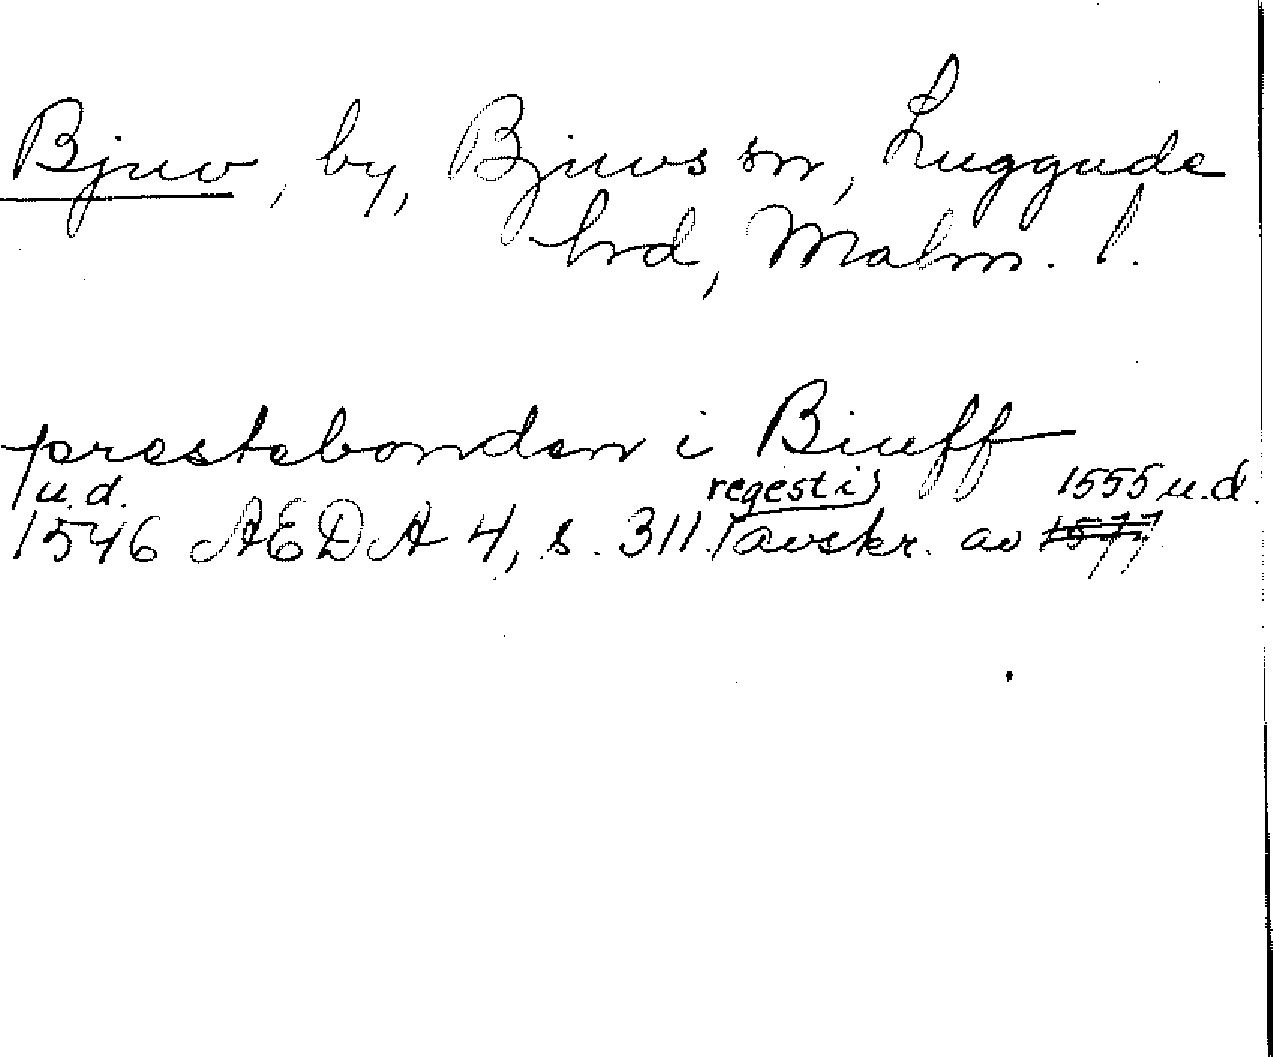 Bjuv, by, Bjuvs sn, Luggude
hrd, Malm. l.
prestebonden i Biuff
u.d. regest i 1555 u.d.
1546 AEDA 4, s. 311. avskr. av 1577